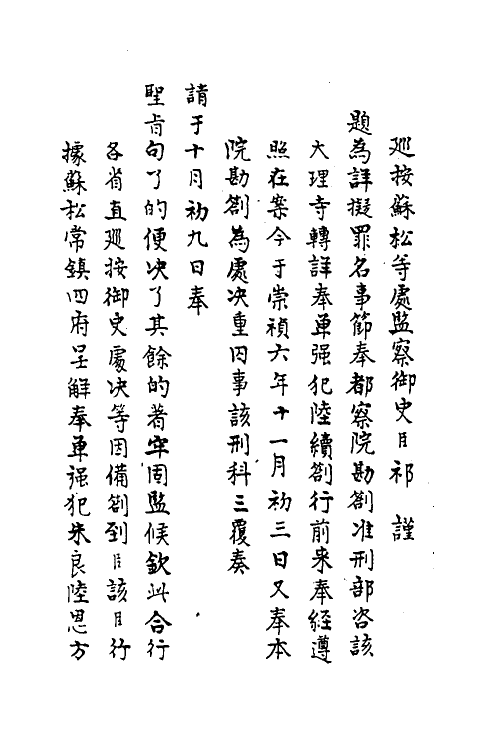 廵按蘇松等處監察御史臣祁　謹
題為詳擬罪名事節奉都察院勘劄准刑部咨該
大理寺轉詳奉單强犯陸續劄行前来奉經遵
照在案今于崇禎六年十一月初三日又奉本
院勘劄為處决重囚事該刑科三覆奏
請于十月初九日奉
聖旨句了的便决了其餘的著牢固監候欽此合行
各省直廵按御史處决等因備劄到臣該臣行
據蘇松常鎮四府呈解奉單强犯朱良陸思方